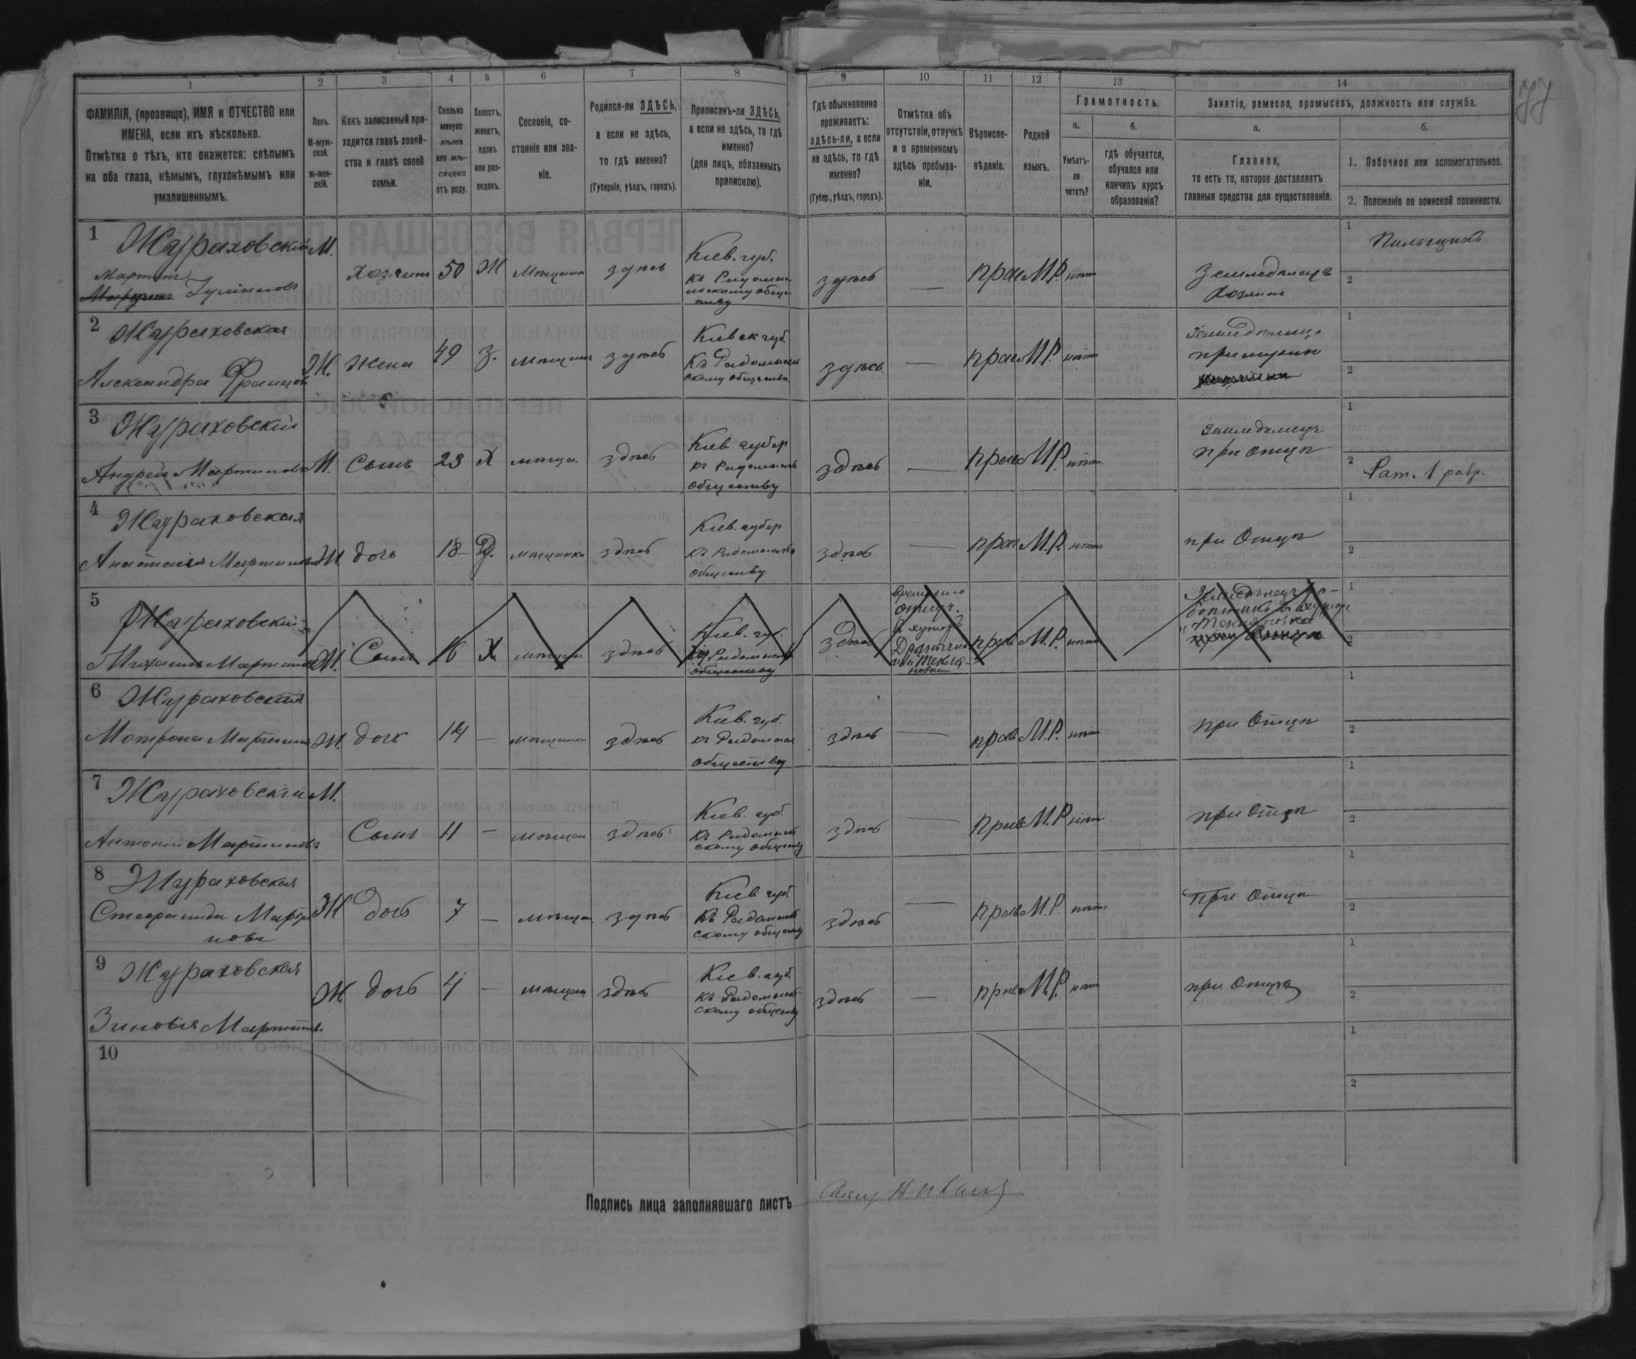 1 2 3 4 5 6 7 8 9 10 11 12 13 14
ФАМИЛІЯ, (прозвище), ИМЯ и ОТЧЕСТВО или
ИМЕНА, если ихъ нѣсколько.
Отмѣтка о тѣхъ, кто окажется: слѣпымъ
на оба глаза, нѣмымъ, глухонѣмымъ или
умалишеннымъ.
Полъ.
М-муж-
ской.
Ж-жен-
скій.
Какъ записанный при-
ходится главѣ хозяй-
ства и главѣ своей
семьи.
Сколько
минуло
лѣтъ
или мѣ-
сяцевъ
отъ роду.
Холостъ,
женатъ,
вдовъ
или раз-
веденъ.
Сословіе, со-
стояніе или зва-
ніе.
Родился-ли ЗДѢСЬ,
а если не здѣсь,
то гдѣ именно?
(Губернія, уѣздъ, городъ).
Приписанъ-ли ЗДѢСЬ,
а если не здѣсь, то гдѣ
именно?
(для лицъ, обязанныхъ
припискою).
Гдѣ обыкновенно
проживаетъ:
здѣсь-ли, а если
не здѣсь, то гдѣ
именно?
(Губер., уѣздъ, городъ).
Отмѣтка объ
отсутствіи, отлучкѣ
и о временномъ
здѣсь пребыва-
ніи.
Вѣроиспо-
вѣданіе.
Родной
языкъ.
Грамотность.
а.
Умѣетъ-
ли
читать?
б.
гдѣ обучается,
обучался или
кончилъ курсъ
образованія?
Занятіе, ремесло, промыселъ, должность или служба.
а.
Главное,
то есть то, которое доставляетъ
главныя средства для существованія.
б.
1. Побочное или вспомогательное.
2. Положеніе по воинской повинности.
1 Жураховскій М.
Мартинъ
хозяинъ 50 Ж мѣщанин здѣсь
Кіев. губ.
здѣсь — прав М.Р. нѣтъ
Земледѣлецъ
Хозяинъ
1 Пильщикъ
2
2 Жураховская
Александра Францов Ж. Жена 49 З. мѣщанка здѣсь
Кіевск губ
къ Радомысль
скому обществу
здѣсь — прав М.Р. нѣтъ
при мужѣ
1
2
3 Жураховскій
Андрей Мартиновъ М. Сынъ 23 Х мѣщан. здѣсь
Кіев губер
къ Радомысль
обществу
здѣсь — прав М.Р. нѣтъ
при отцѣ
1
2 Рат. 1 разр.
4 Жураховская
Анастасія Мартинов Ж дочь 18 Д. мѣщанка здѣсь
Кіев. губер
къ Радомысль
обществу
здѣсь — прав М.Р. нѣтъ при Отцѣ
1
2
5 Жураховскій
Михаилъ Мартинов М. Сынъ 16 Х мѣщан здѣсь
Кіев. губ.
къ Радомысль
обществу
здѣсь
прав М.Р. нѣтъ
1
2
6 Жураховская
Мотрона Мартинов Ж. дочь 14 — мѣщанка здѣсь
Кіев. губ.
къ Радомысль
обществу
здѣсь — прав М.Р. нѣтъ при Отцѣ
1
2
7 Жураховскій М.
Антоній Мартиновъ Сынъ 11 — мѣщан здѣсь
Кіев. губ.
къ Радомысль
скому обществу
здѣсь — прав М.Р. нѣтъ при Отцѣ
1
2
8 Жураховская
Степанида Марти
нова
Ж дочь 7 — мѣщан здѣсь
Кіев губ
къ Радомысль
скому обществу
здѣсь — прав М.Р. нѣтъ При Отцѣ
1
2
9 Жураховская
Зиновія Мартинов. Ж дочь 4 — мѣщан здѣсь
Кіев. губ
къ Радомысль
скому обществу
здѣсь — прав М.Р. нѣтъ при Отцѣ
1
2
10
1
2
Подпись лица заполнявшаго листъ